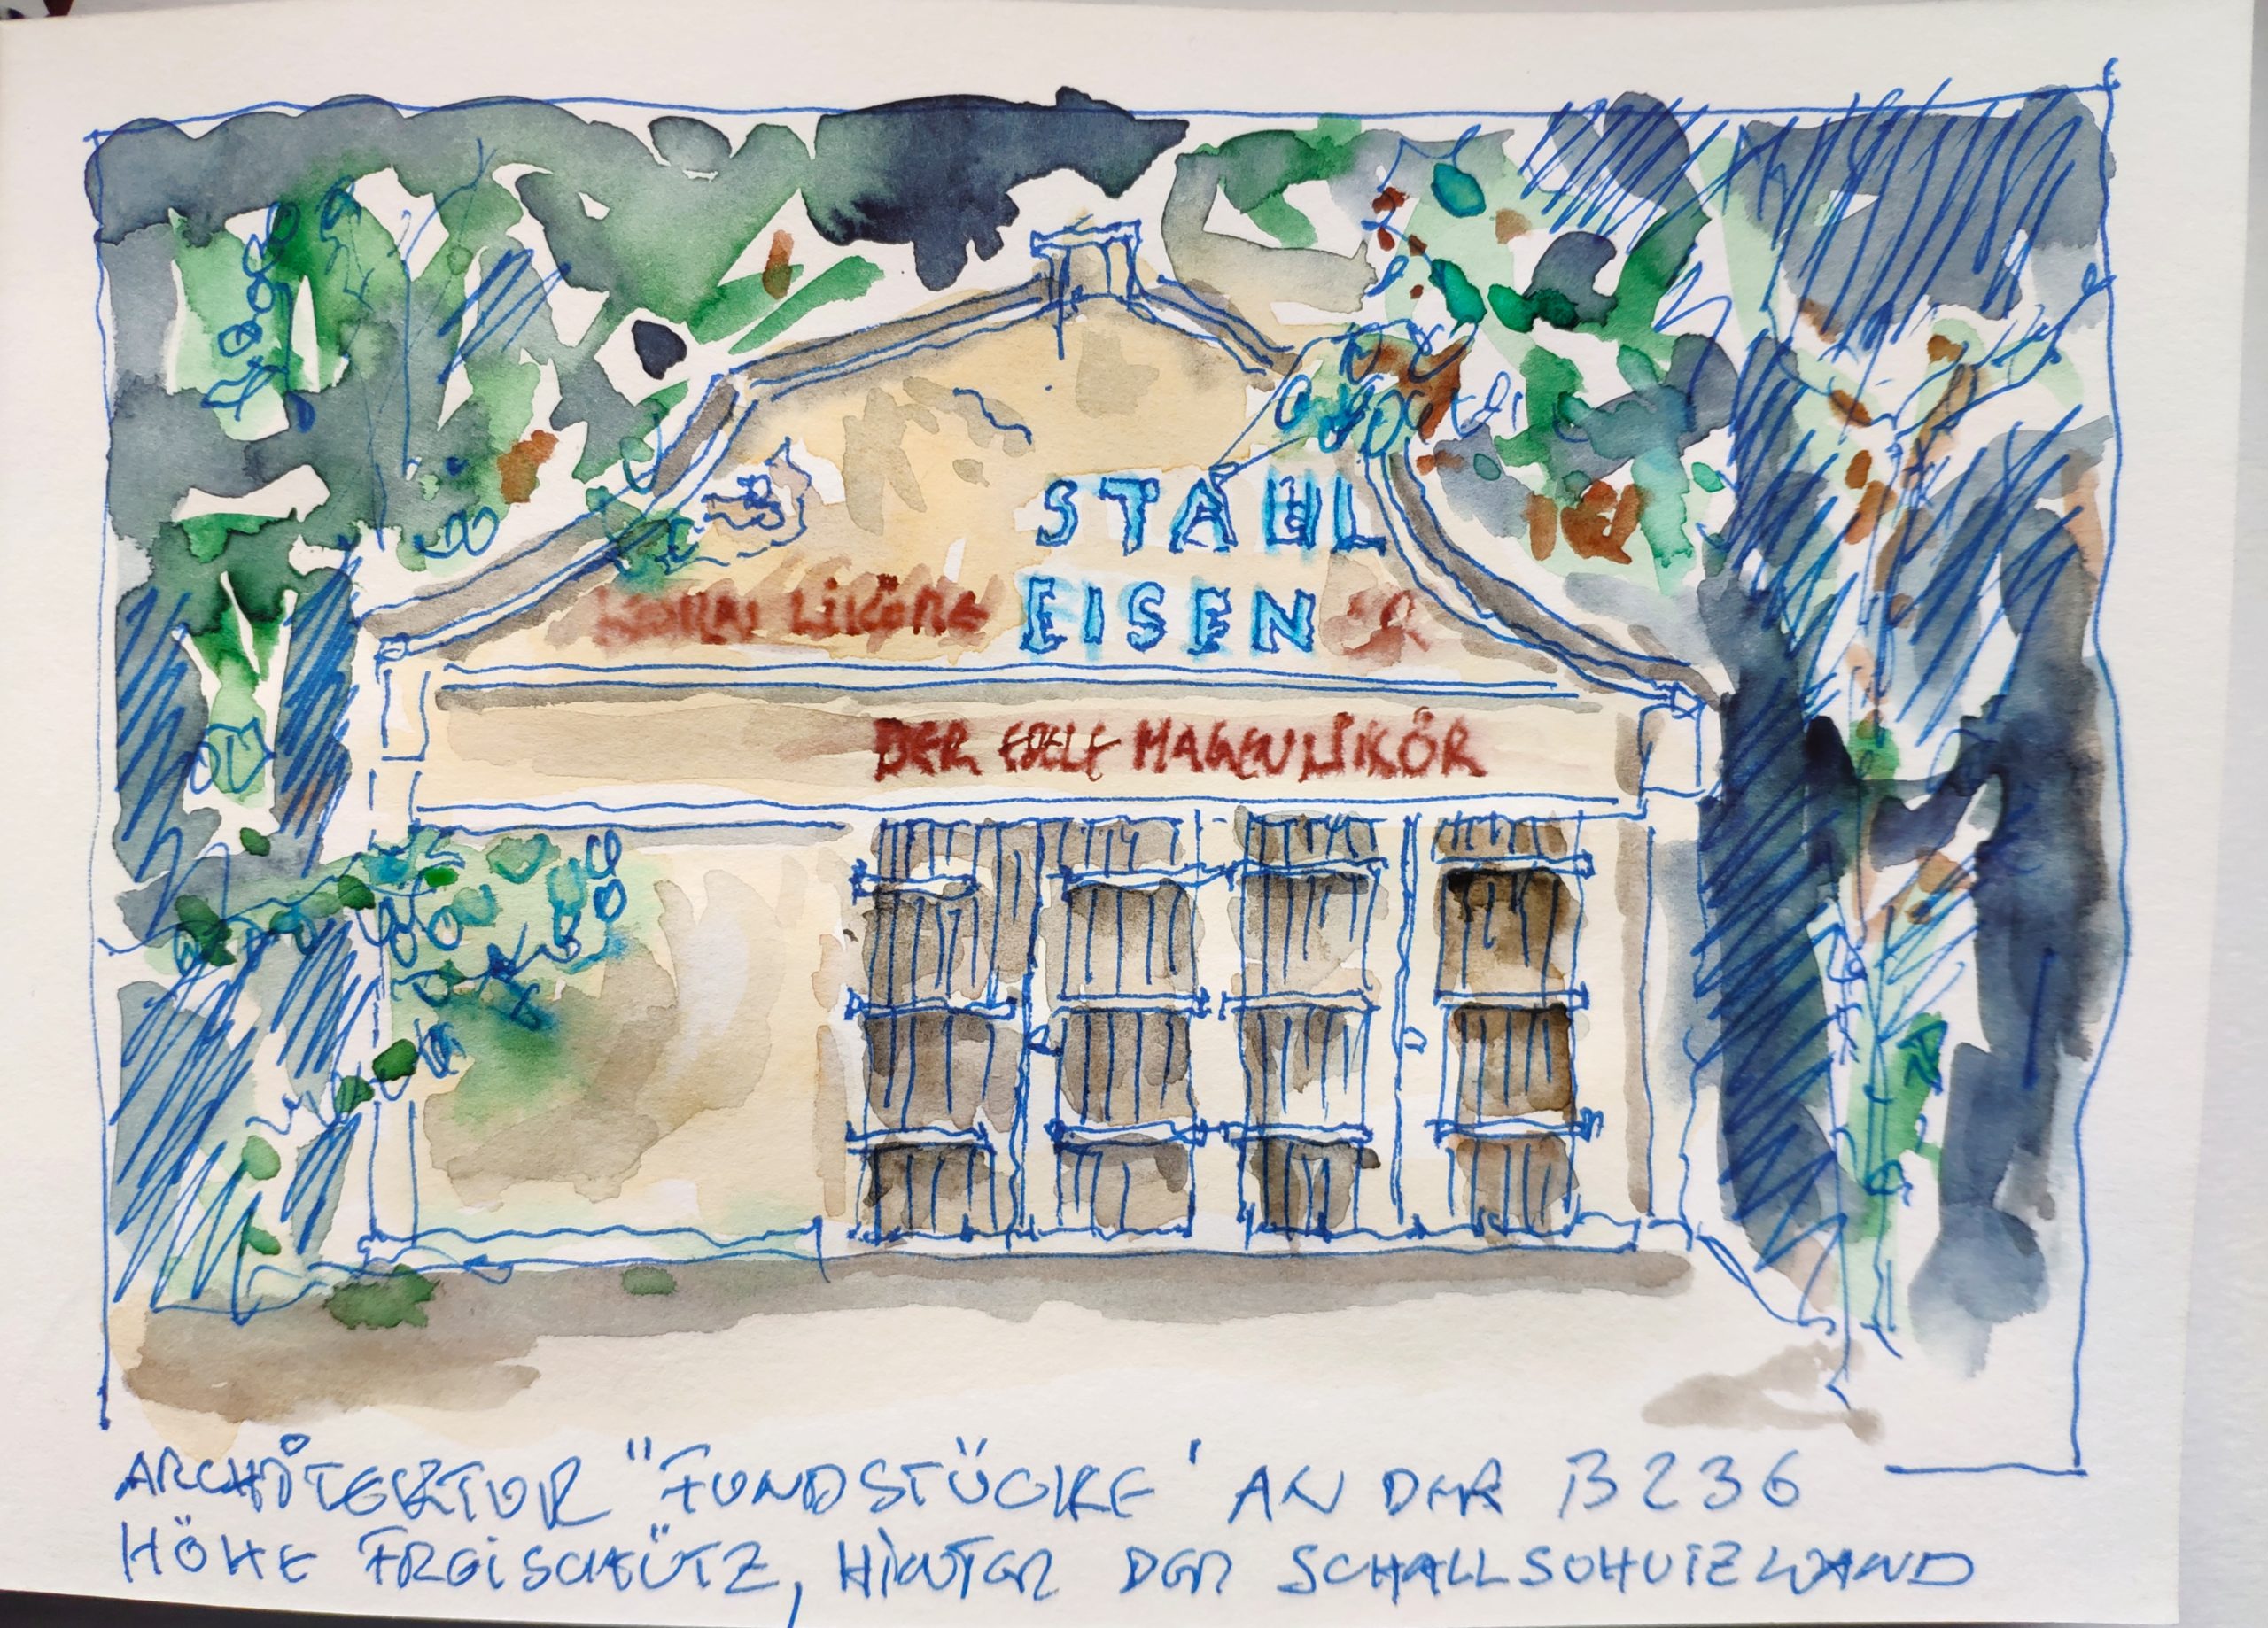 STAHL
LIKÖRE EISEN
DER EDELE MAGENLIKÖR
ARCHITEKTUR "FUNDSTÜCKE' AN DER B236
HÖHE FREISCHÜTZ, HINTER DER SCHALLSCHUTZWAND